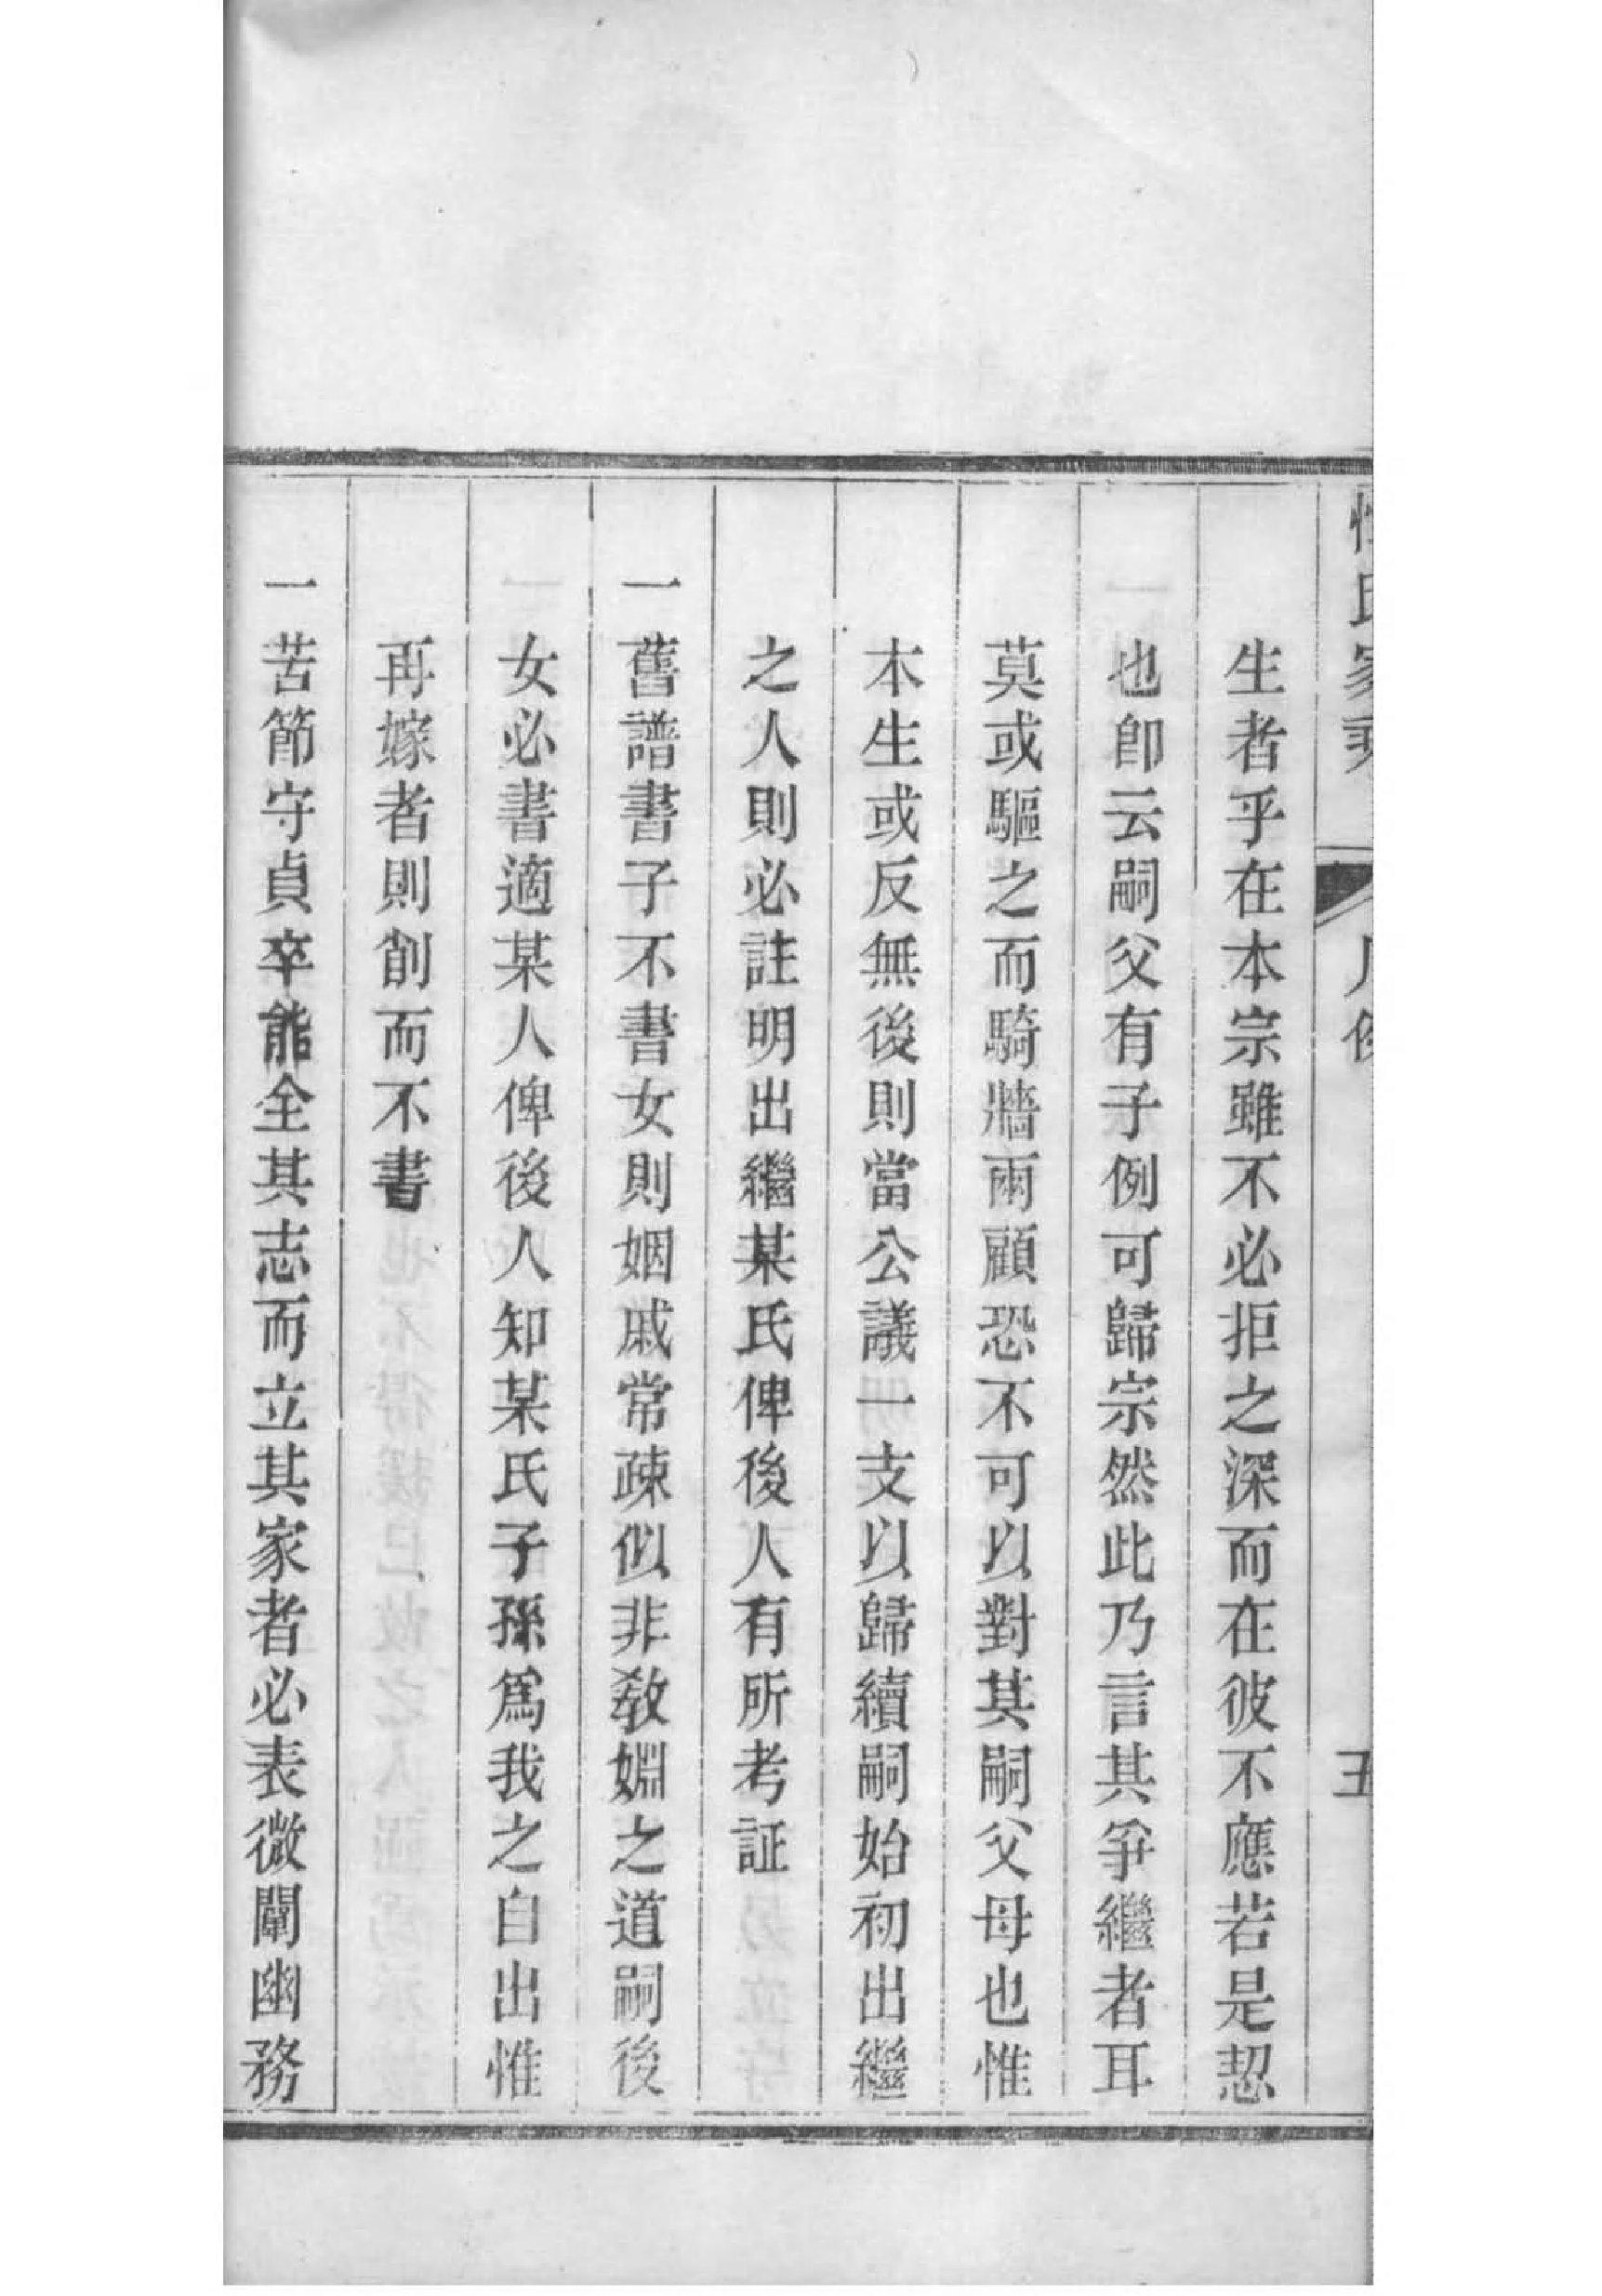 氏家乘 凡 五
生者乎在本宗雖不必拒之深而在彼不應若是恝
也卽云嗣父有子例可歸宗然此乃言其爭繼者耳
莫或驅之而騎牆兩顧恐不可以對其嗣父母也惟
本生或反無後則當公議一支以歸續嗣始初出繼
之人則必註明出繼某氏俾後人有所考証
一舊譜書子不書女則姻戚常疎似非敎婣之道嗣後
女必書適某人俾後人知某氏子孫爲我之自出惟
再嫁者則創而不書
一苦節守貞卒能全其志而立其家者必表微闡幽務